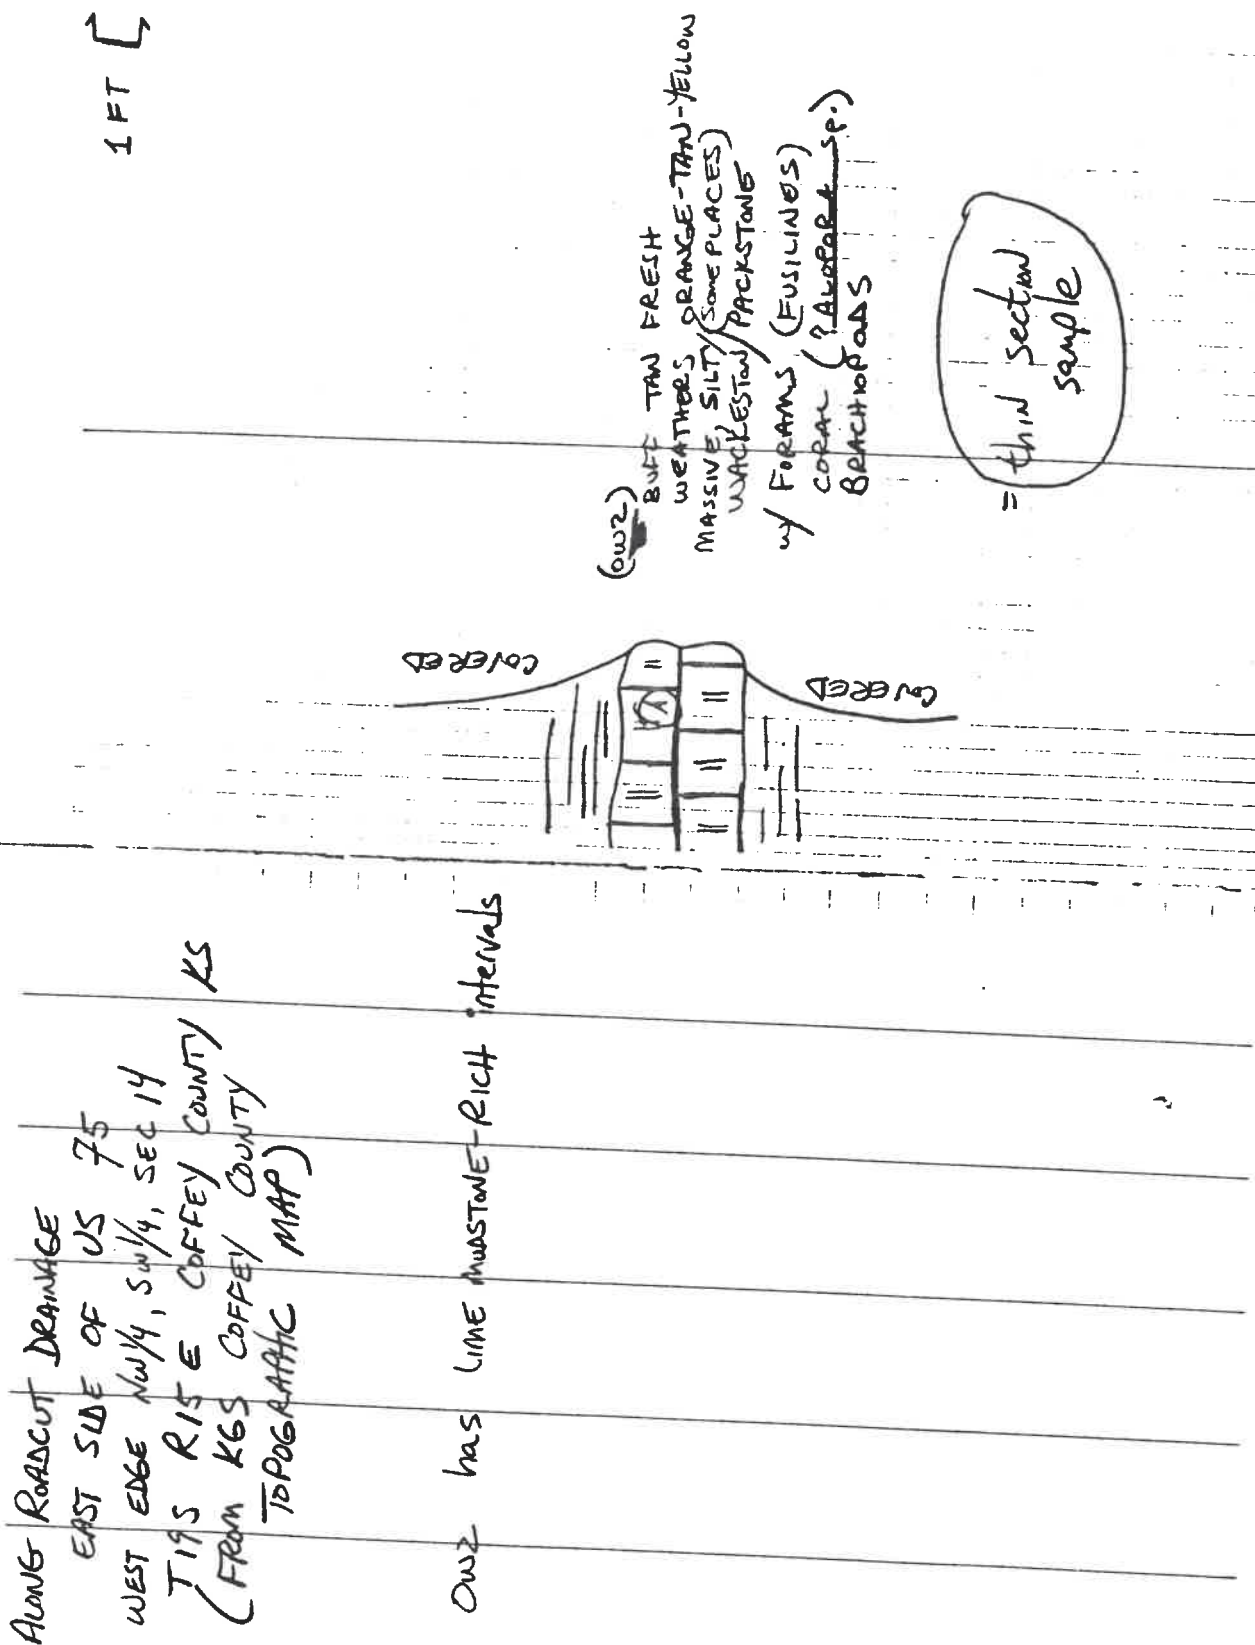 ALONG ROADCUT DRAINAGE
EAST SIDE OF US 75
WEST EDGE NW1/4, SW1/4, SEC 14
T19S R15E COFFEY COUNTY KS
(FROM KGS COFFEY COUNTY
TOPOGRAPHIC MAP)
OW2 has LIME MUDSTONE-RICH intervals
COVERED
COVERED
1 FT
(OW2)
BUFF TAN FRESH
WEATHERS ORANGE-TAN-YELLOW
MASSIVE, SILTY (SOME PLACES)
WACKESTON/PACKSTONE
w/ FORAMS (FUSILINES)
CORAL (?AULOPORA sp.)
BRACHIOPODS
= thin section
sample